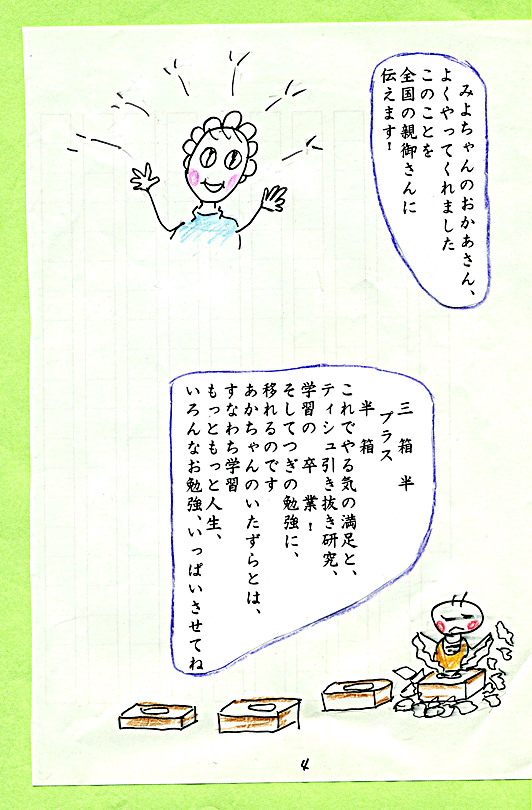 みよちゃんのおかあさん、
よくやってくれました
このことを
全国の親御さんに
伝えます!
三箱半
プラス
半箱
これでやる気の満足と、
ティシュ引き抜き研究、
学習の 卒 業!
そしてつぎの勉強に、
移れるのです
あかちゃんのいたずらとは、
すなわち学習
もっともっと人生、
いろんなお勉強、いっぱいさせてね
4